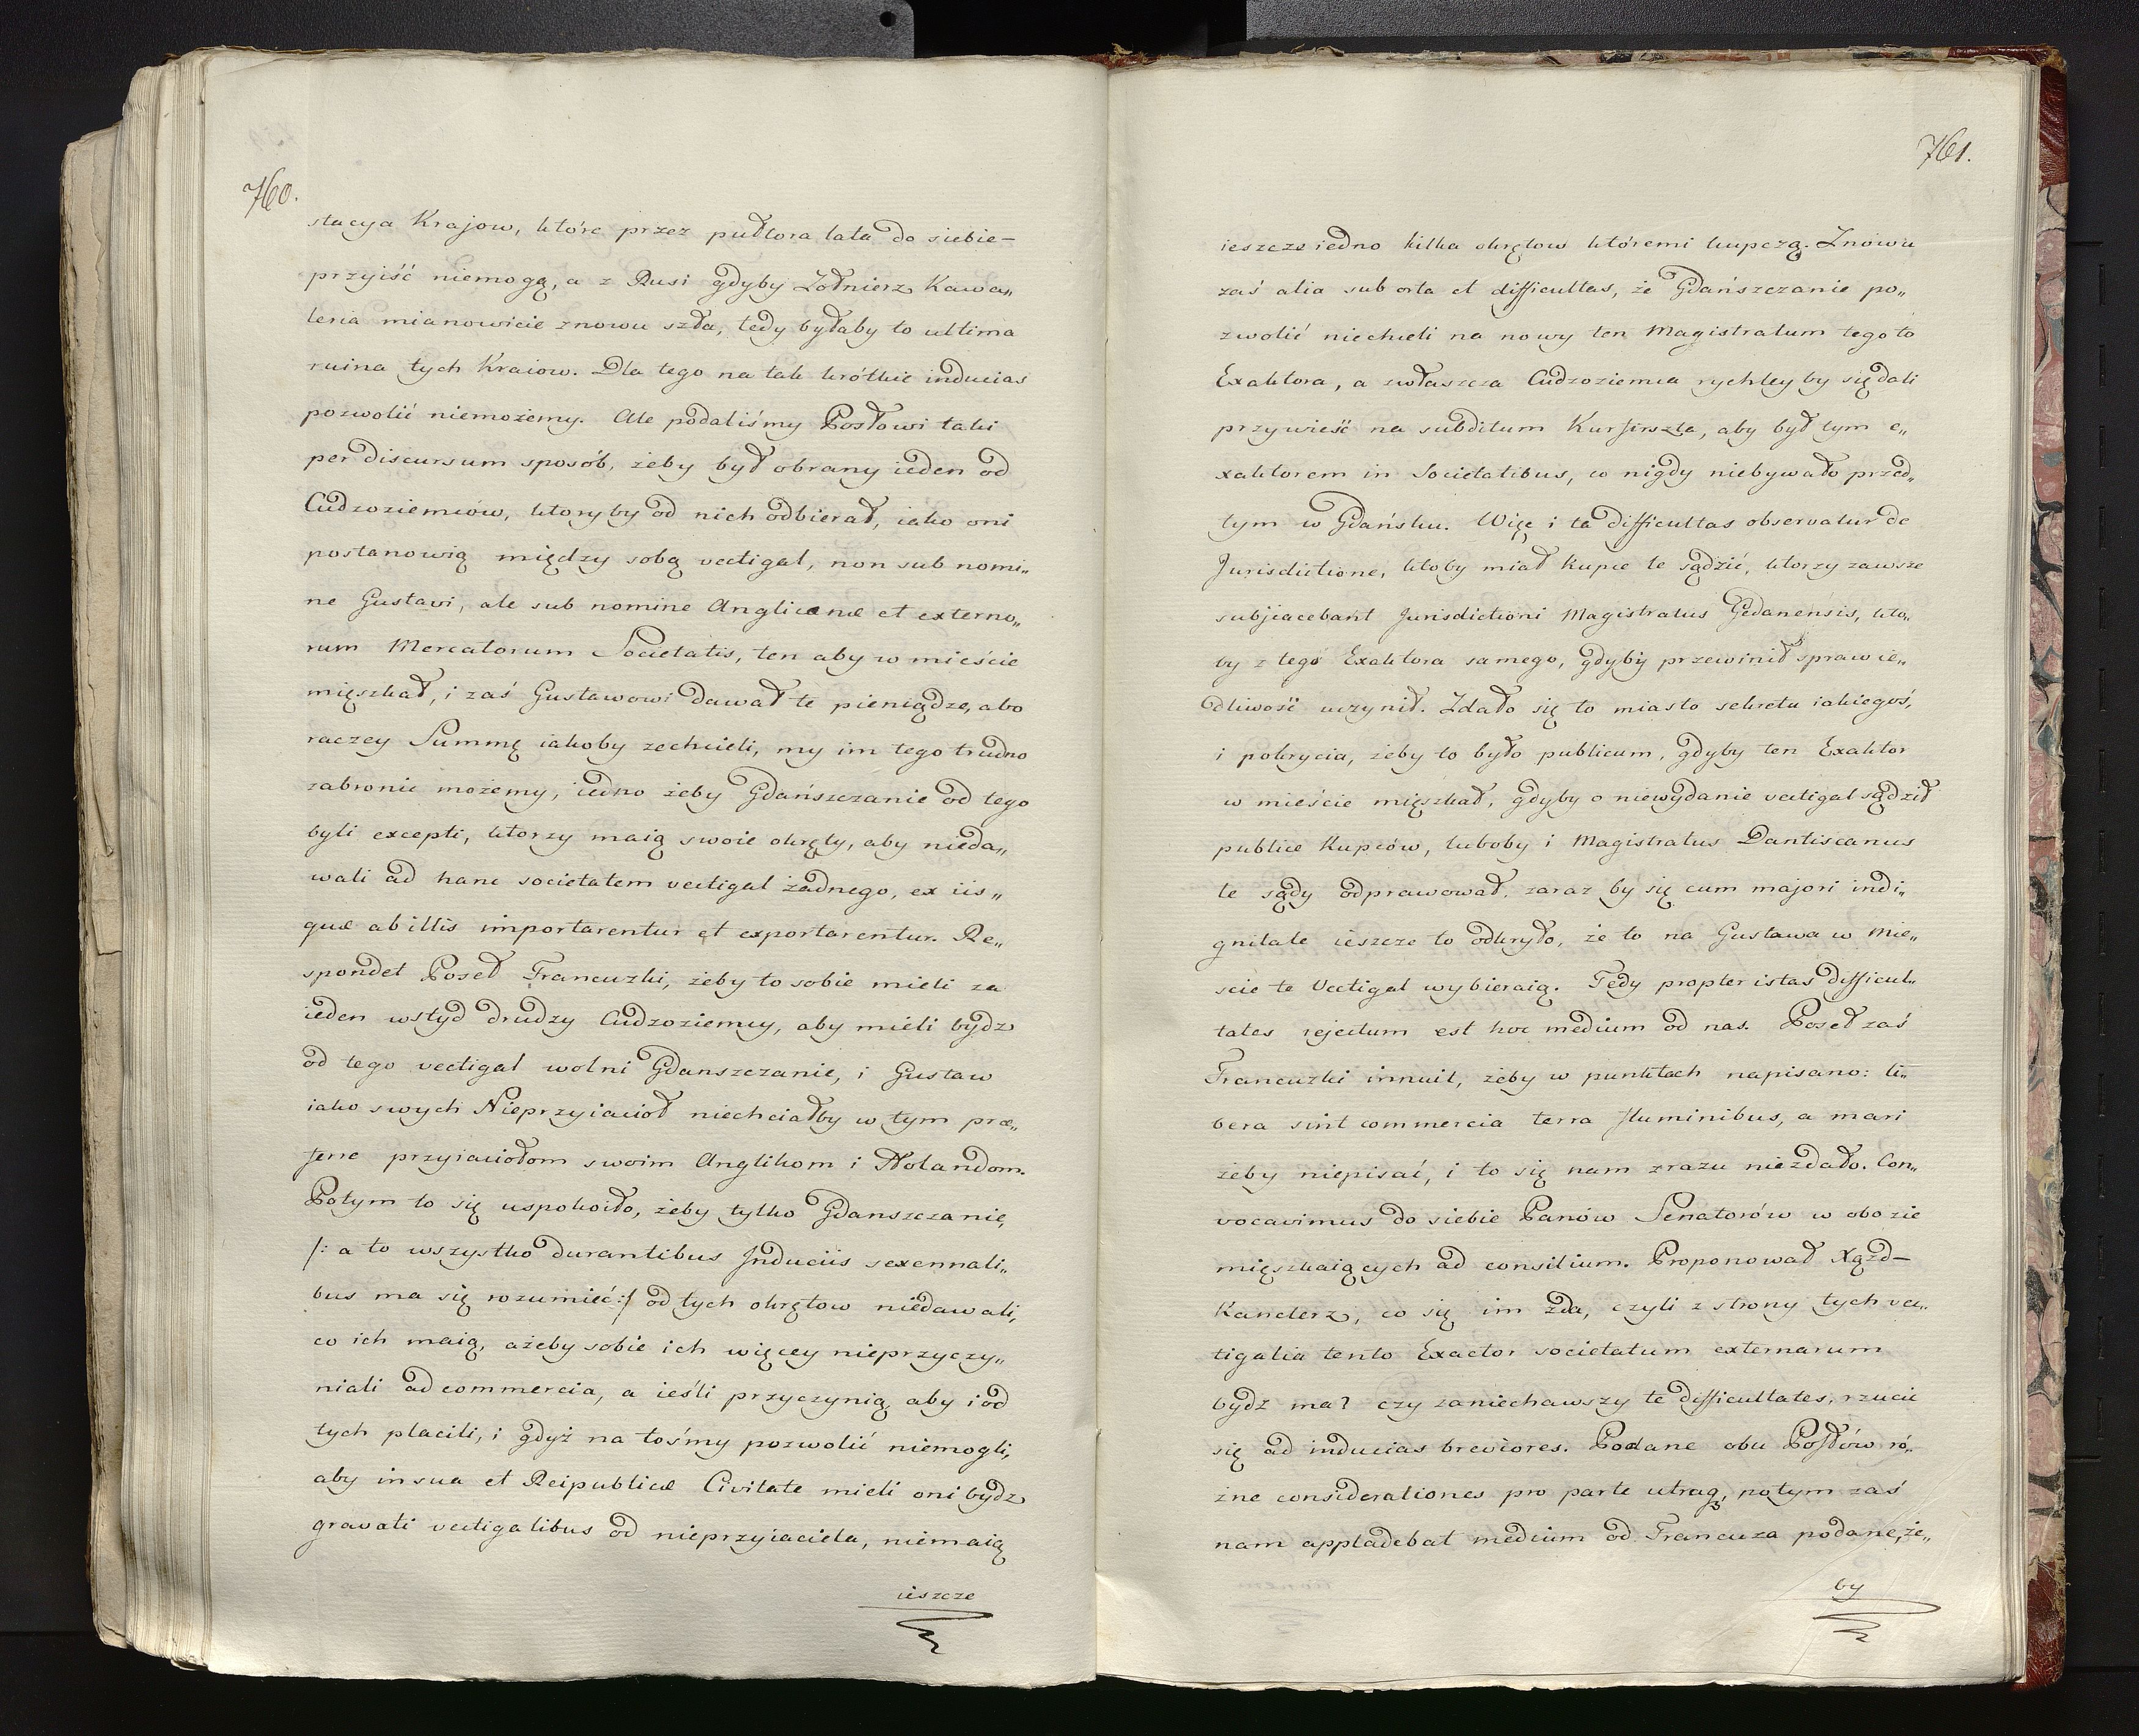 760.
stacya Krajow, które przez pułtora lata do siebie-
przyiść niemogą, a z Rusi gdyby Zołnierz Kawa„
leria mianowicie znowu szła, tedy byłaby to ultima
ruina tych Kraiow. Dla tego na tak krótkie inducias
pozwolić niemożemy. Ale podaliśmy Posłowi taki
per discursum sposób, żeby był obrany ieden od
Cudzoziemców, ktoryby od nich odbierał, iako oni
postanowią między sobą vectigal, non sub nomi„
ne Gustavi, ale sub nomine Anglicanæ et externo„
rum Mercatorum Societatis, ten aby w mieście
mięszkał, i zaś Gustawowi dawał te pieniądze, abo
raczey Summę iakoby zechcieli, my im tego trudno
zabronic możemy, iedno żeby Gdańszczanie od tego
byli excepti, ktorzy maią swoie okręty, aby nieda„
wali ad hanc societatem vectigal żadnego, ex iis„
quæ ab illis importarentur et exportarentur. Re„
spondet Poseł Francuzki, żeby to sobie mieli za
ieden wstyd drudzy Cudzoziemcy, aby mieli bydz
od tego vectigal wolni Gdanszczanie, i Gustaw
iako swych Nieprzyiacioł niechciałby w tym præ„
ferre przyiaciołom swoim Anglikom i Holandom.
Potym to się uspokoiło, żeby tylko Gdanszczanie,
/: a to wszystko durantibus Induciis sexennali„
bus ma się rozumieć:/ od tych okrętow niedawali,
co ich maią, ażeby sobie ich więcey nieprzyczy„
niali ad commercia, a ieśli przyczynią, aby i od
tych placili, i gdyż na tośmy pozwolić niemogli,
aby in sua et Reipublicæ Civitate mieli oni bydz
gravati vectigalibus od nieprzyiaciela, niemaią
ieszcze
761.
ieszcze iedno kilka okrętow któremi kupczą. Znowu
zaś alia sub orta et difficultas, że Gdańszczanie po„
zwolić niechcieli na nowy ten Magistratum tego to
Exaktora, a zwłaszcza Cudzoziemca rychley by się dali
przywieść na subditum Kurfirszta, aby był tym e„
xaktorem in Societatibus, co nigdy niebywało przed„
tym w Gdańsku. Więc i ta difficultas observatur de
Jurisdictione, ktoby miał kupce te sądzić, ktorzy zawsze
subjiacebant Jurisdictioni Magistratus Gedanensis, kto„
by z tego Exaktora samego, gdyby przewinił sprawie„
dliwość uczynił. Zdało się to miasto sekretu iakiegoś,
i pokrycia, żeby to było publicum, gdyby ten Exaktor
w mieście mięszkał, gdyby o niewydanie vectigal sądził
publice Kupców, luboby i Magistratus Dantiscanus
te sądy odprawował, zaraz by się cum majori indi„
gnitate ieszcze to odkryło, że to na Gustawa w Mie„
scie te Vectigal wybieraią. Tedy propter istas difficul„
tates rejectum est hoc medium od nas. Poseł zaś
Francuzki innuit, żeby w punktach napisano: li„
bera sint commercia terra fluminibus, a mari
żeby niepisać, i to się nam zrazu niezdało. Con„
vocavimus do siebie Panów Senatorów w obozie
mięszkaiących ad consilium. Proponował Xądz-
Kanclerz, co się im zda, czyli z strony tych vec„
tigalia tento Exactor societatum externarum
bydz ma? czy zaniechawszy te difficultates, rzucić
się ad inducias breviores. Podane obu Posłów ró„
żne considerationes pro parte utraq, potym zaś
nam appladebat medium od Francuza podane, że„
by